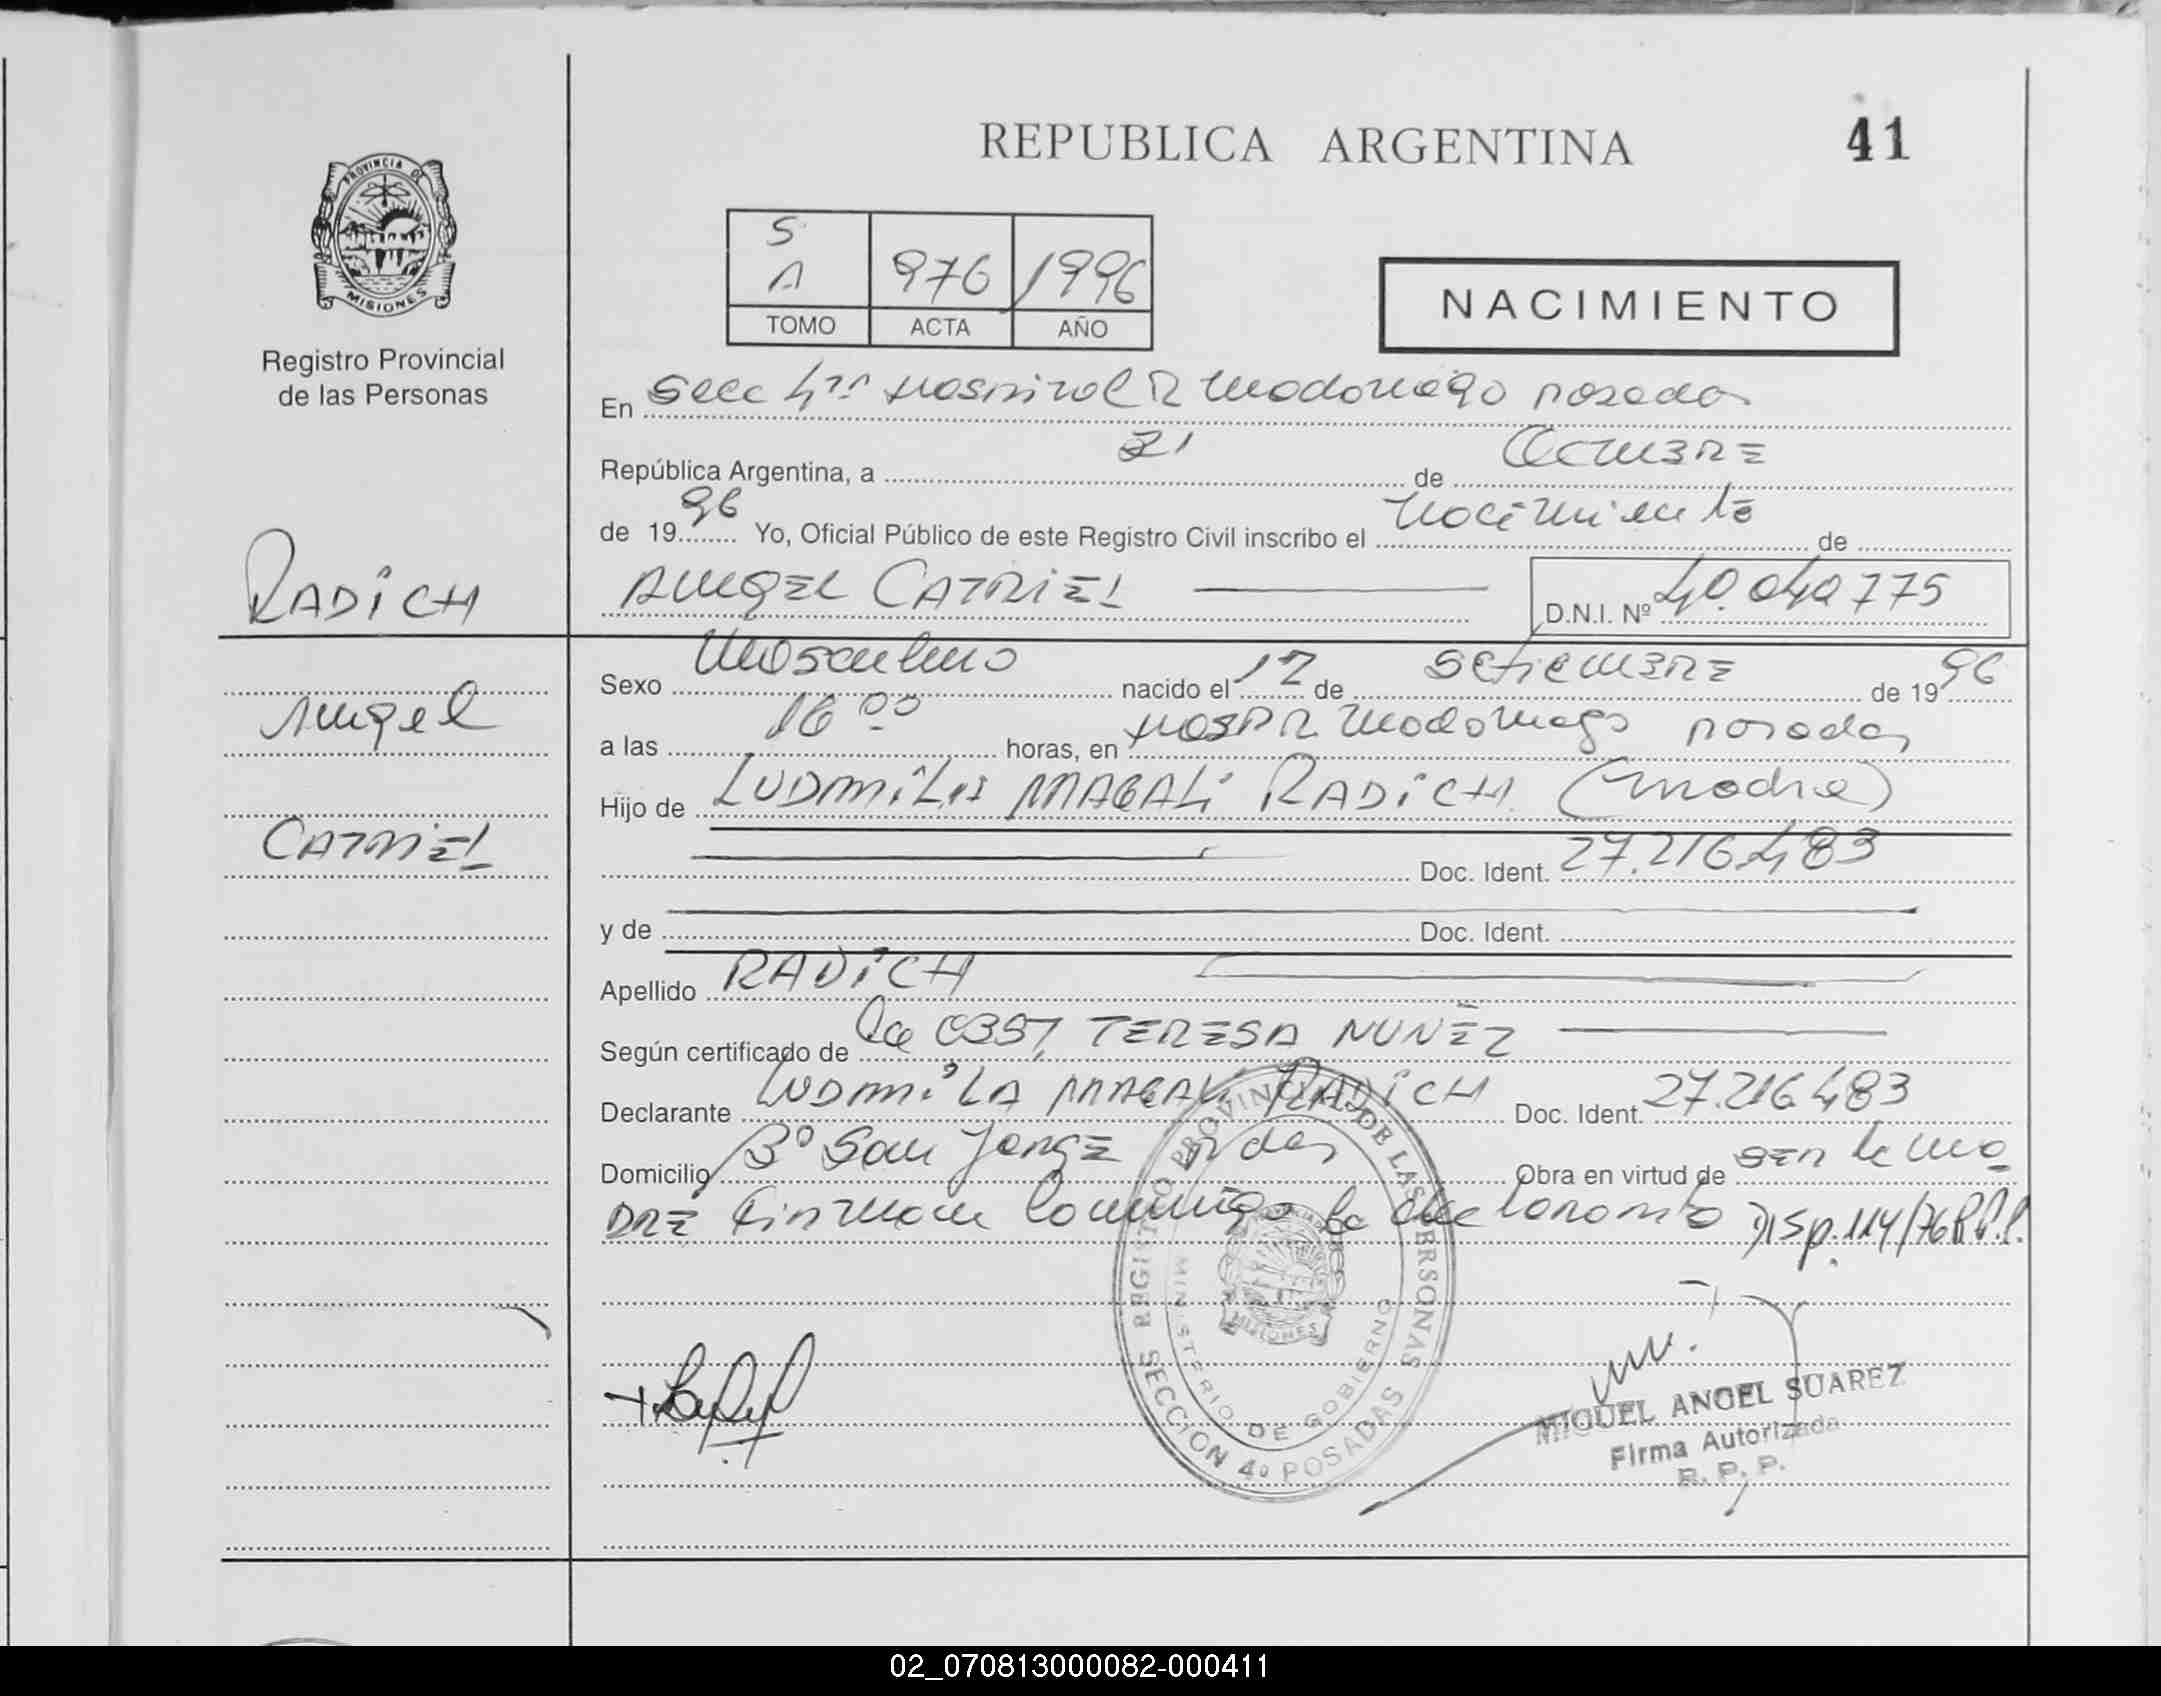 REPUBLICA ARGENTINA
41
PROVINCIA DE
MISIONES
Registro Provincial
de las Personas
S
A 976 1996
TOMO ACTA AÑO
NACIMIENTO
En Secc 4ta Hospital R Madariaga Posadas
República Argentina, a 21 de Octubre
de 1996 Yo, Oficial Público de este Registro Civil inscribo el nacimiento de
RADICH
ANGEL CATRIEL
D.N.I. Nº 40.040775
Sexo Masculino nacido el 12 de Setiembre de 1996
Angel
a las 16 00 horas, en Hosp R. Madariaga Posadas
Hijo de LUDMILA MAGALI RADICH (madre)
CATRIEL
Doc. Ident. 27.216.483
y de Doc. Ident.
Apellido RADICH
Según certificado de la OBST. TERESA NUÑEZ
Declarante LUDMILA MAGALI RADICH Doc. Ident. 27.216.483
Domicilio Bº San Jorge Pdas Obra en virtud de ser la ma
dre Firman conmigo la declarante Disp. 114/76 R.P.P.
REGISTRO PROVINCIAL DE LAS PERSONAS
MINISTERIO DE GOBIERNO
MISIONES
SECCION 4º POSADAS
MIGUEL ANGEL SUAREZ
Firma Autorizada
R. P. P.
02_070813000082-000411